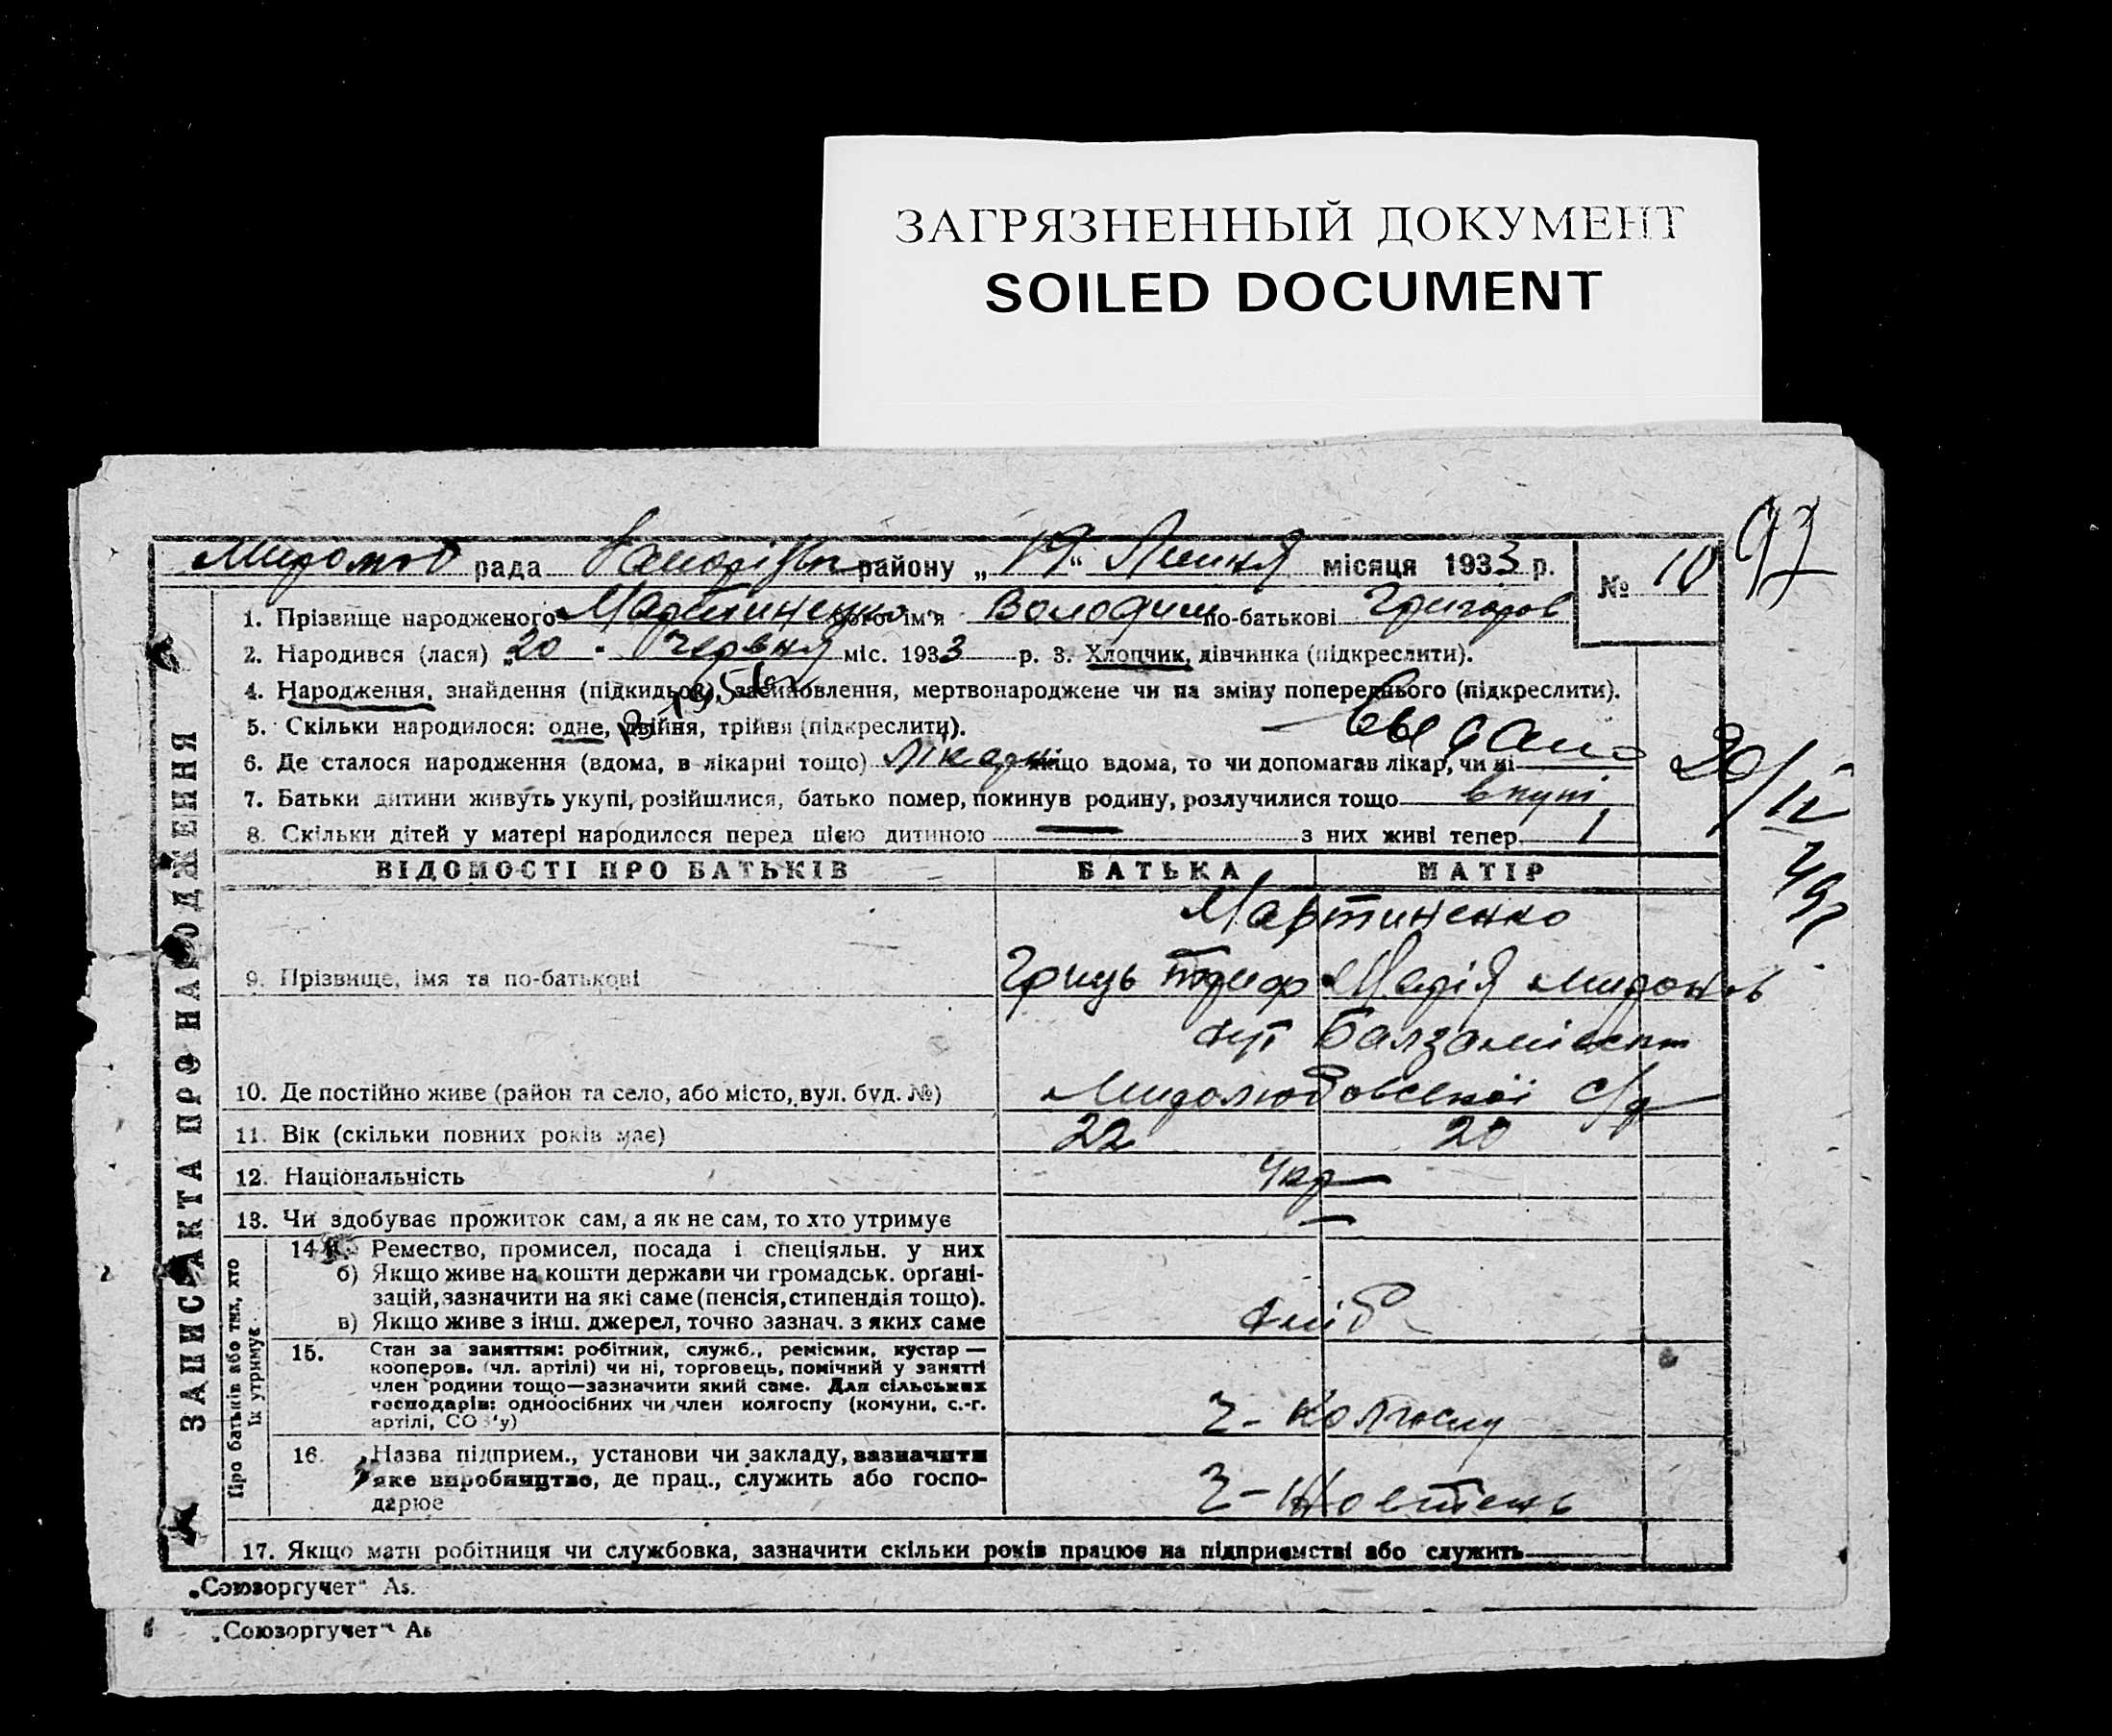 ЗАГРЯЗНЕННЫЙ ДОКУМЕНТ
SOILED DOCUMENT
97
рада району „19“ Липня місяця 1933 р. № 10
1. Прізвище народженого Мартиненко його ім'я Володим по-батькові Григоров
2. Народився (лася) „20 " Червня міс. 1933 р. 3. Хлопчик, дівчинка (підкреслити).
4. Народження, знайдення (підкидьок), засиновлення, мертвонароджене чи на зміну попереднього (підкреслити).
5. Скільки народилося: одне, двійня, трійня (підкреслити).
Выдано
6. Де сталося народження (вдома, в лікарні тощо) лікарні якщо вдома, то чи допомагав лікар, чи ні
20/IV 49р.
7. Батьки дитини живуть укупі, розійшлися, батько помер, покинув родину, розлучилися тощо вкупі
8. Скільки дітей у матері народилося перед цією дитиною — з них живі тепер 1
ЗАПИСКА АКТА ПРО НАРОДЖЕННЯ
ВІДОМОСТІ ПРО БАТЬКІВ БАТЬКА МАТІР
Мартиненко
9. Прізвище, імя та по-батькові Гриць Триф Марія Миронов
Балзаміевт
10. Де постійно живе (район та село, або місто, вул. буд. №) Миролюбовської с/р
11. Вік (скільки повних років має) 22 20
12. Національність Укр
13. Чи здобуває прожиток сам, а як не сам, то хто утримує —
Про батьків або тих, хто їх утримує
14. Ремество, промисел, посада і спеціяльн. у них
б) Якщо живе на кошти держави чи громадськ. органі-
зацій, зазначити на які саме (пенсія, стипендія тощо).
в) Якщо живе з інш. джерел, точно зазнач. з яких саме хліб
15. Стан за заняттям: робітник, служб., ремісник, кустар —
кооперов. (чл. артілі) чи ні, торговець, помічний у занятті
член родини тощо—зазначити який саме. Для сільських
господарів: одноосібних чи член колгоспу (комуни, с.-г.
артілі, СОЗ'у) Ч- Колгоспу
16. Назва підприєм., установи чи закладу, зазначити
яке виробництво, де прац., служить або госпо-
дарює Жовтень
17. Якщо мати робітниця чи службовка, зазначити скільки років працює на підприємстві або служить
„Союзоргучет“ А5.
„Союзоргучет“ А5